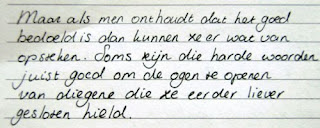 Maar als men onthoudt dat het goed
bedoeld is dan kunnen ze er wat van
opsteken. Soms zijn die harde woorden
juist goed om de ogen te openen
van diegene die ze eerder liever
gesloten hield.